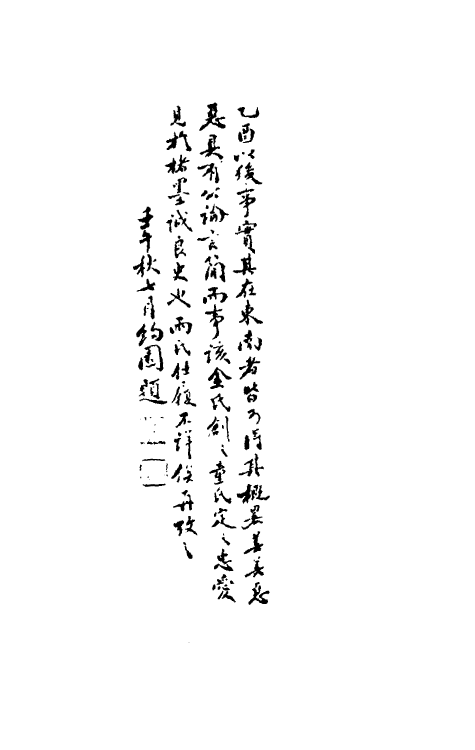 乙酉以後事實其在東南者皆可得其概畧善善惡
惡具有公論言簡而事該金氏創之童氏定之忠愛
見於楮墨誠良史也兩氏仕履不詳俟再攷之
壬午秋七月約園題